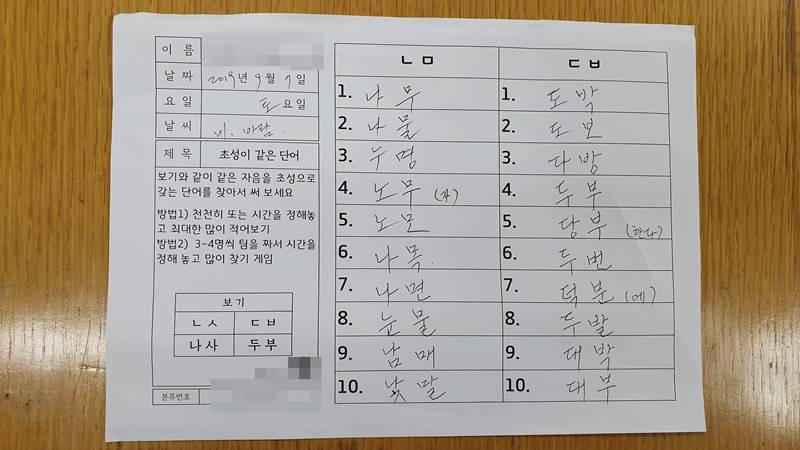 이 름
날 짜 2019년 9월 7일
요 일 토요일
날 씨 비. 바람.
제 목 초성이 같은 단어
보기와 같이 같은 자음을 초성으로
갖는 단어를 찾아서 써 보세요
방법1) 천천히 또는 시간을 정해놓
고 최대한 많이 적어보기
방법2) 3~4명씩 팀을 짜서 시간을
정해 놓고 많이 찾기 게임
보기
ㄴㅅ ㄷㅂ
나사 두부
분류번호
ㄴㅁ ㄷㅂ
1. 나무 1. 도박
2. 나물 2. 도보
3. 누명 3. 다방
4. 노무(자) 4. 두부
5. 노모 5. 당부(한다)
6. 나목. 6. 두번
7. 나면 7. 덕분(에)
8. 눈물 8. 두발
9. 남매 9. 대박
10. 낱말 10. 대부